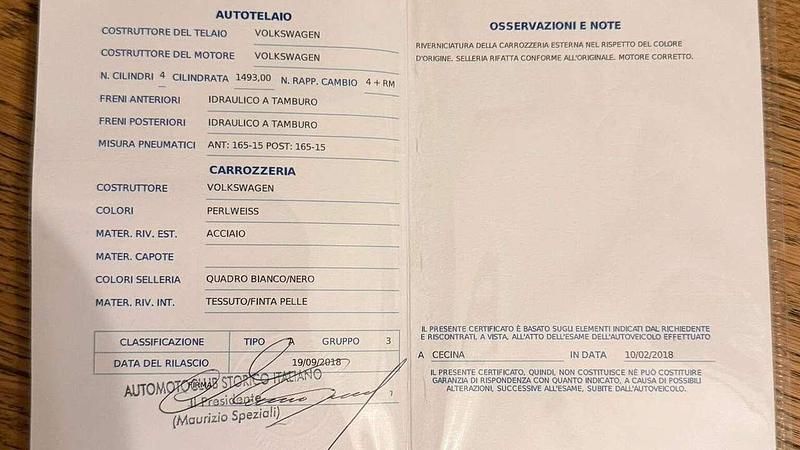 AUTOTELAIO
COSTRUTTORE DEL TELAIO VOLKSWAGEN
COSTRUTTORE DEL MOTORE VOLKSWAGEN
N. CILINDRI 4 CILINDRATA 1493,00 N. RAPP. CAMBIO 4 + RM
FRENI ANTERIORI IDRAULICO A TAMBURO
FRENI POSTERIORI IDRAULICO A TAMBURO
MISURA PNEUMATICI ANT: 165-15 POST: 165-15
CARROZZERIA
COSTRUTTORE VOLKSWAGEN
COLORI PERLWEISS
MATER. RIV. EST. ACCIAIO
MATER. CAPOTE
COLORI SELLERIA QUADRO BIANCO/NERO
MATER. RIV. INT. TESSUTO/FINTA PELLE
CLASSIFICAZIONE TIPO A GRUPPO 3
DATA DEL RILASCIO 19/09/2018
FIRMA
AUTOMOTOCLUB STORICO ITALIANO
Il Presidente
(Maurizio Speziali)
OSSERVAZIONI E NOTE
RIVERNICIATURA DELLA CARROZZERIA ESTERNA NEL RISPETTO DEL COLORE
D'ORIGINE. SELLERIA RIFATTA CONFORME ALL'ORIGINALE. MOTORE CORRETTO.
IL PRESENTE CERTIFICATO È BASATO SUGLI ELEMENTI INDICATI DAL RICHIEDENTE
E RISCONTRATI, A VISTA, ALL'ATTO DELL'ESAME DELL'AUTOVEICOLO EFFETTUATO
A CECINA IN DATA 10/02/2018
IL PRESENTE CERTIFICATO, QUINDI, NON COSTITUISCE NÈ PUÒ COSTITUIRE
GARANZIA DI RISPONDENZA CON QUANTO INDICATO, A CAUSA DI POSSIBILI
ALTERAZIONI, SUCCESSIVE ALL'ESAME, SUBITE DALL'AUTOVEICOLO.